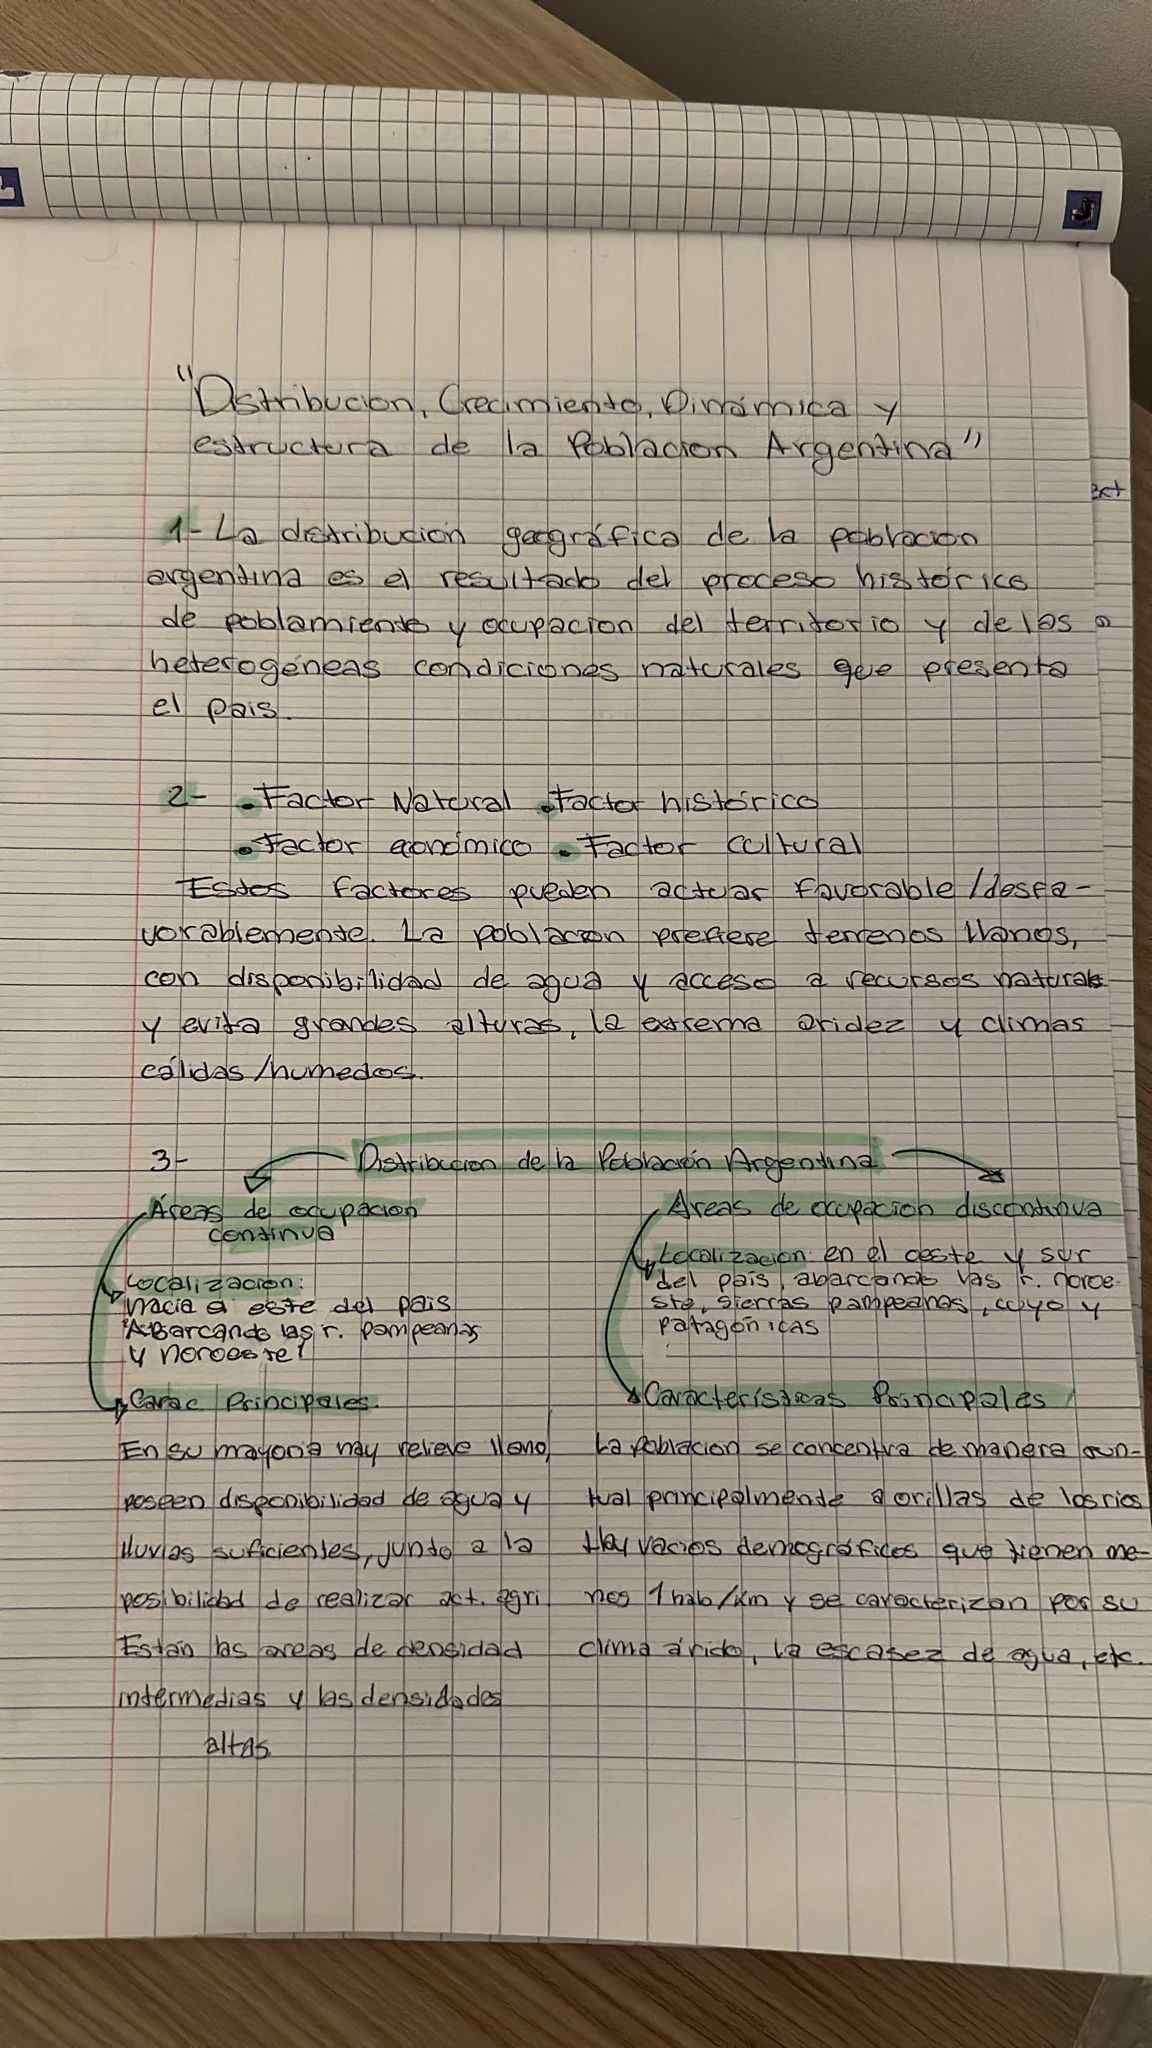 "Distribucion, Crecimiento, Dinámica y
estructura de la Poblacion Argentina"
1- La distribución geográfica de la poblacion
argentina es el resultado del proceso histórico
de poblamiento y ocupacion del territorio y de las
heterogéneas condiciones naturales que presenta
el pais.
2- • Factor Natural • Factor histórico
• Factor económico • Factor cultural
Estos factores pueden actuar favorable/desfa-
vorablemente. La poblacion prefiere terrenos llanos,
con disponibilidad de agua y acceso a recursos naturales
y evita grandes alturas, la extrema aridez y climas
cálidas/humedos.
3- Distribucion de la Población Argentina
Áreas de ocupacion
continua
Localizacion:
hacia el este del pais
Abarcando las r. pampeanas
y noroeste
Carac Principales.
En su mayoria hay relieve llano,
poseen disponibilidad de agua y
lluvias suficientes, junto a la
posibilidad de realizar act. agri
Están las areas de densidad
intermedias y las densidades
altas
Areas de ocupacion discontinua
Localizacion: en el oeste y sur
del país, abarcando las r. noroe-
ste, sierras pampeanas, cuyo y
patagónicas
Características Principales
La poblacion se concentra de manera pun-
tual principalmente a orillas de los rios
Hay vacios demográficos que tienen me-
nos 1 hab/km y se caracterizan por su
clima árido, la escasez de agua, etc.